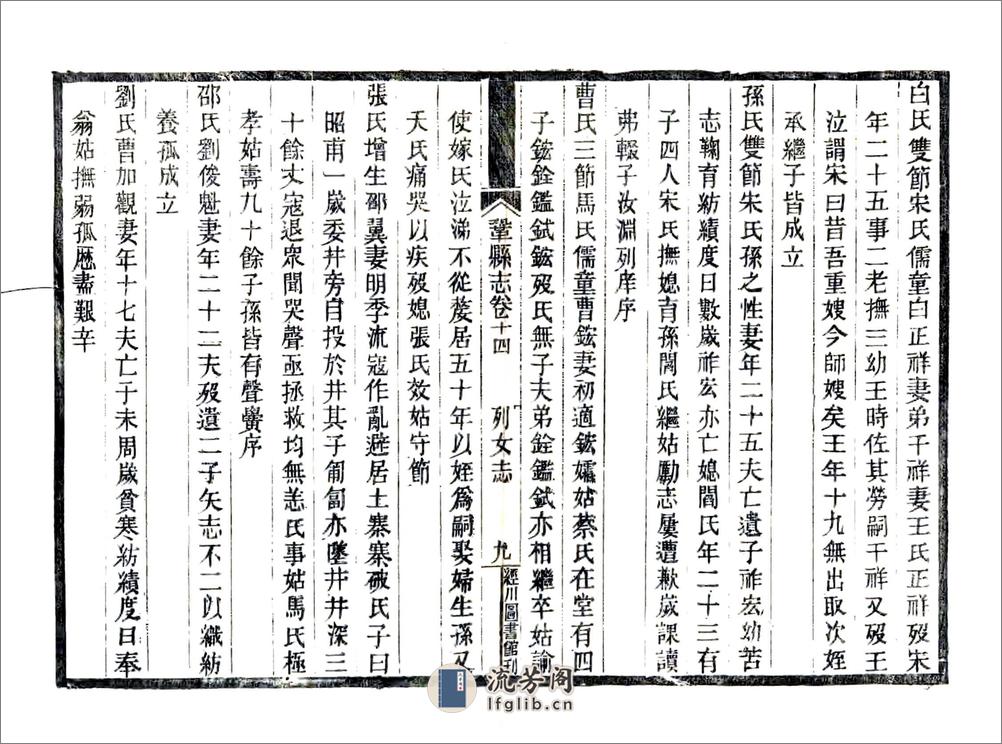 白氏雙節宋氏儒童白正祥妻弟千祥妻王氏正祥歿宋
年二十五事二老撫三幼王時佐其勞嗣千祥又歿王
泣謂宋曰昔吾重嫂今師嫂矣王年十九無出取次姪
承繼子皆成立
孫氏雙節朱氏孫之性妻年二十五夫亡遺子祚宏幼苦
志鞠育紡績度日數歲祚宏亦亡媳閻氏年二十三有
子四人宋氏撫媳育孫閻氏繼姑勵志屢遭歉歲課讀
弗輟子汝淵列庠序
曹氏三節馬氏儒童曹鋐妻初適鋐孀姑蔡氏在堂有四
子鋐銓鑑鉽鋐歿氏無子夫弟銓鑑鉽亦相繼卒姑諭
使嫁氏泣涕不從嫠居五十年以姪爲嗣娶婦生孫又
夭氏痛哭以疾歿媳張氏效姑守節
張氏增生邵翼妻明季流寇作亂避居土寨寨破氏子曰
昭甫一歲委井旁自投於井其子匍匐亦墜井井深三
十餘丈寇退衆聞哭聲亟拯救均無恙氏事姑馬氏極
孝姑壽九十餘子孫皆有聲黌序
邵氏劉俊魁妻年二十二夫歿遺二子矢志不二以織紡
養孤成立
劉氏曹加觀妻年十七夫亡子未周歲貧寒紡績度日奉
翁姑撫弱孤歷盡艱辛
鞏縣志卷十四 列女志 九 經川圖書館刊
流芳阁
lfglib.cn